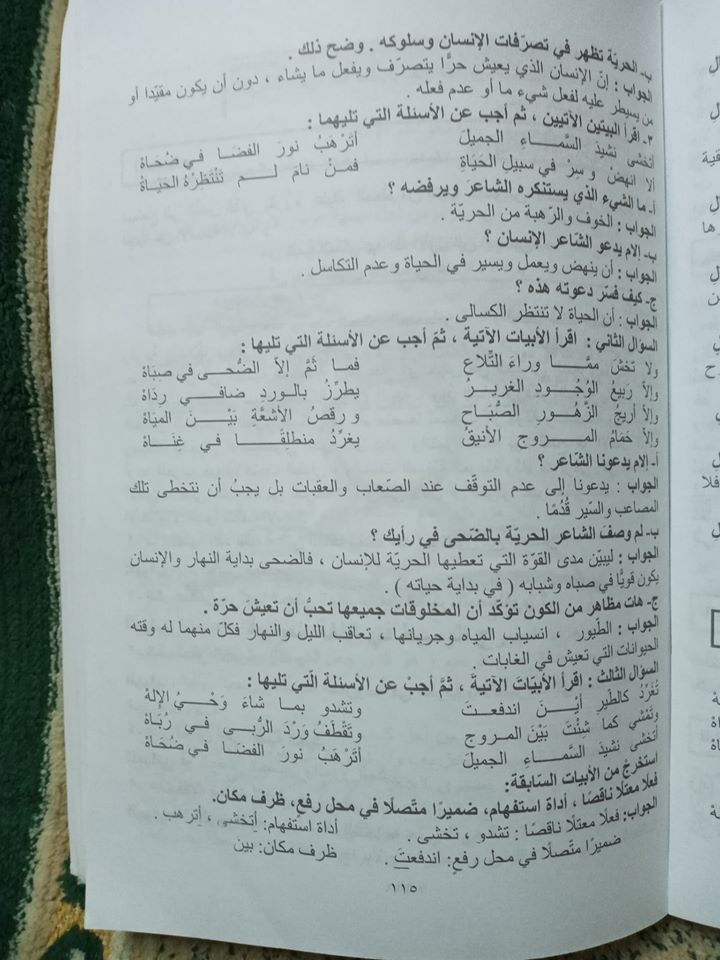 ب- الحريّة تظهر في تصرّفات الإنسان وسلوكه . وضح ذلك .
الجواب : إنّ الإنسان الذي يعيش حرًّا يتصرّف ويفعل ما يشاء ، دون أن يكون مقيّدا أو
من يسيطر عليه لفعل شيء ما أو عدم فعله .
٣- اقرأ البيتين الآتيين ، ثم أجب عن الأسئلة التي تليهما :
أتخشى نشيدَ السَّماءِ الجميلَ أتَرْهَبُ نورَ الفضَا في ضُحَاهْ
ألا انهضْ و سِرْ في سبيلِ الحَيَاةِ فمنْ نامَ لم تَنْتَظرْهُ الحَيَاهْ
أ- ما الشيء الذي يستنكره الشاعرَ ويرفضه ؟
الجواب : الخوف والرّهبة من الحريّة .
ب- إلام يدعو الشّاعر الإنسان ؟
الجواب : أن ينهض ويعمل ويسير في الحياة وعدم التكاسل .
ج- كيف فسّر دعوته هذه ؟
الجواب : أن الحياة لا تنتظر الكسالى .
السؤال الثاني : اقرأ الأبيات الآتية ، ثمّ أجب عن الأسئلة التي تليها :
ولا تخشَ ممَّا وراءَ التِّلاعِ فما ثَمَّ إلاّ الضُّحى في صِبَاهْ
وإلاّ ربيعُ الوُجُودِ الغريرُ يطرِّزُ بالوردِ ضافي رِدَاهْ
وإلاّ أريجُ الزُّهُورِ الصُّبَاحِ و رقصُ الأشعَّةِ بَيْنَ المياهْ
وإلاّ حَمَامُ المروجِ الأنيقُ يغرِّدُ منطلِقًا في غِنَاهْ
أ- إلام يدعونا الشّاعر ؟
الجواب : يدعونا إلى عدم التوقّف عند الصّعاب والعقبات بل يجبُ أن نتخطى تلك
المصاعب والسّير قُدُمًا .
ب- لم وصفَ الشاعر الحريّة بالضّحى في رأيك ؟
الجواب : ليبيّن مدى القوّة التي تعطيها الحريّة للإنسان ، فالضحى بداية النهار والإنسان
يكون قويًّا في صباه وشبابه ( في بداية حياته ) .
ج- هات مظاهر من الكون تؤكّد أن المخلوقات جميعها تحبُّ أن تعيشَ حرّة .
الجواب : الطّيور ، انسياب المياه وجريانها ، تعاقب الليل والنهار فكلّ منهما له وقته
الحيوانات التي تعيش في الغابات .
السؤال الثالث : اقرأ الأبيَاتَ الآتيةَ ، ثمَّ أجبْ عن الأسئلة الّتي تليها :
تُغرِّدُ كالطّيرِ أيْنَ اندفعتَ وتشدو بما شاءَ وَحْيُ الإلهْ
وتَمْشي كما شِئْتَ بَيْنَ المروجِ وتَقْطفُ وَرْدَ الرُّبى في رُبَاهْ
أتخشى نشيدَ السَّماءِ الجميلَ أتَرْهَبُ نورَ الفضَا في ضُحَاهْ
استخرجْ من الأبيات السّابقة:
فعلًا معتلًا ناقصًا ، أداة استفهام، ضميرًا متّصلًا في محل رفعٍ، ظرف مكان.
الجواب: فعلًا معتلًا ناقصًا : تشدو ، تخشى . أداة استفهام: أتخشى ، أترهب .
ضميرًا متّصلًا في محل رفعٍ: اندفعتَ . ظرف مكان: بين
١١٥